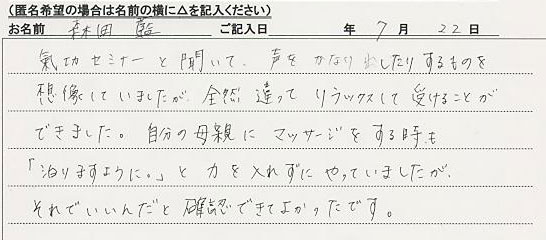 (匿名希望の場合は名前の横に△を記入ください)
お名前 森田 藍 ご記入日 年 7 月 22 日
氣功セミナーと聞いて、声をかなり出したりするものを
想像していましたが、全然違ってリラックスして受けることが
できました。自分の母親にマッサージをする時も
「治りますように。」と力を入れずにやっていましたが、
それでいいんだと確認できてよかったです。